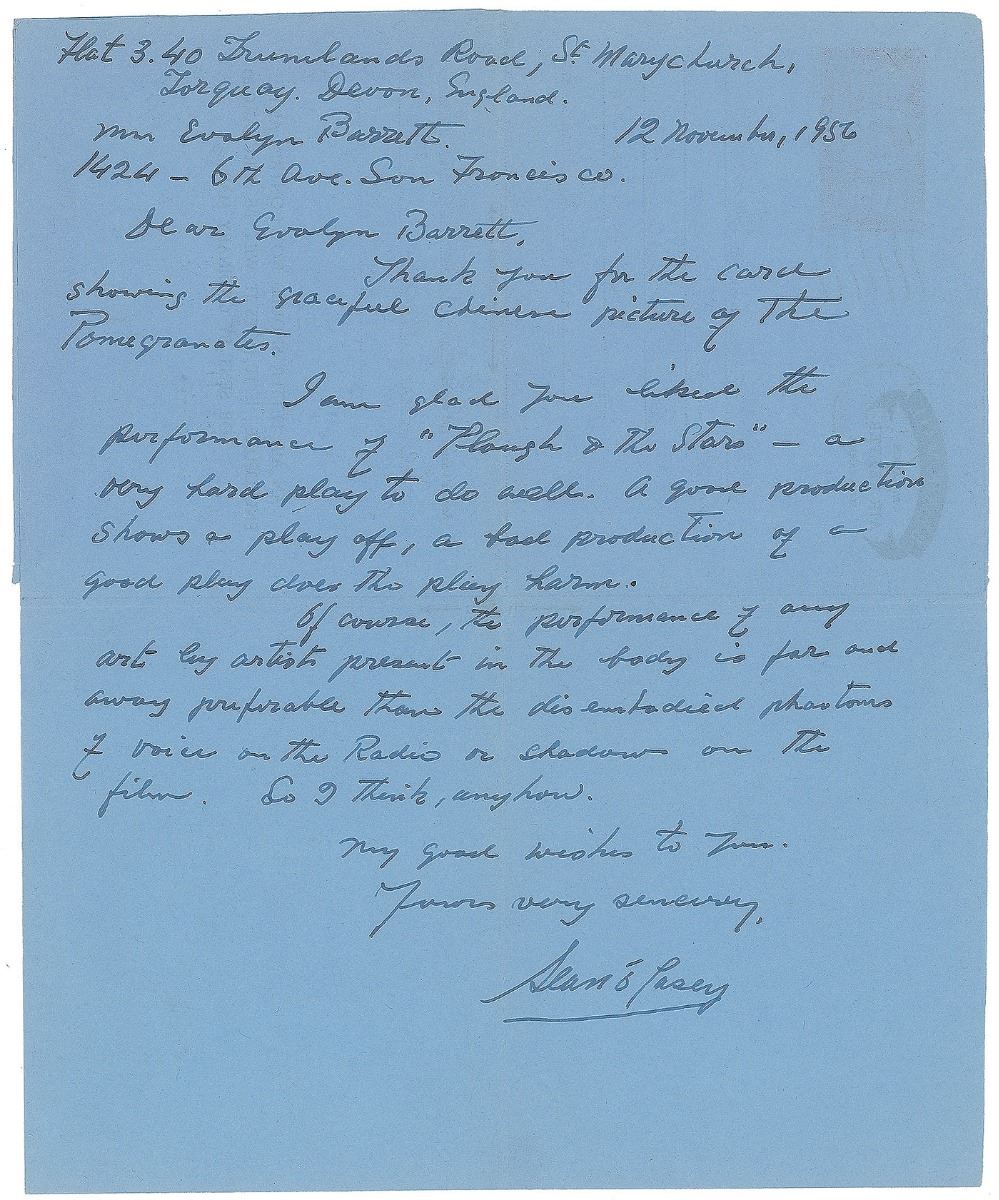 Flat 3. 40 Trumlands Road, St Marychurch,
Torquay. Devon, England.
Mrs Evalyn Barrett. 12 November, 1956
1424 – 6th Ave. San Francisco.
Dear Evalyn Barrett,
Thank you for the card
showing the graceful chinese picture of The
Pomegranates.
I am glad you liked the
performance of "Plough & the Stars" – a
very hard play to do well. A good production
shows a play off, a bad production of a
good play does the play harm.
Of course, the performance of any
art by artists present in the body is far and
away preferable than the disembodied phantoms
of voice on the Radio or shadows on the
film. So I think, anyhow.
My good wishes to you.
Yours very sincerely,
Sean O'Casey